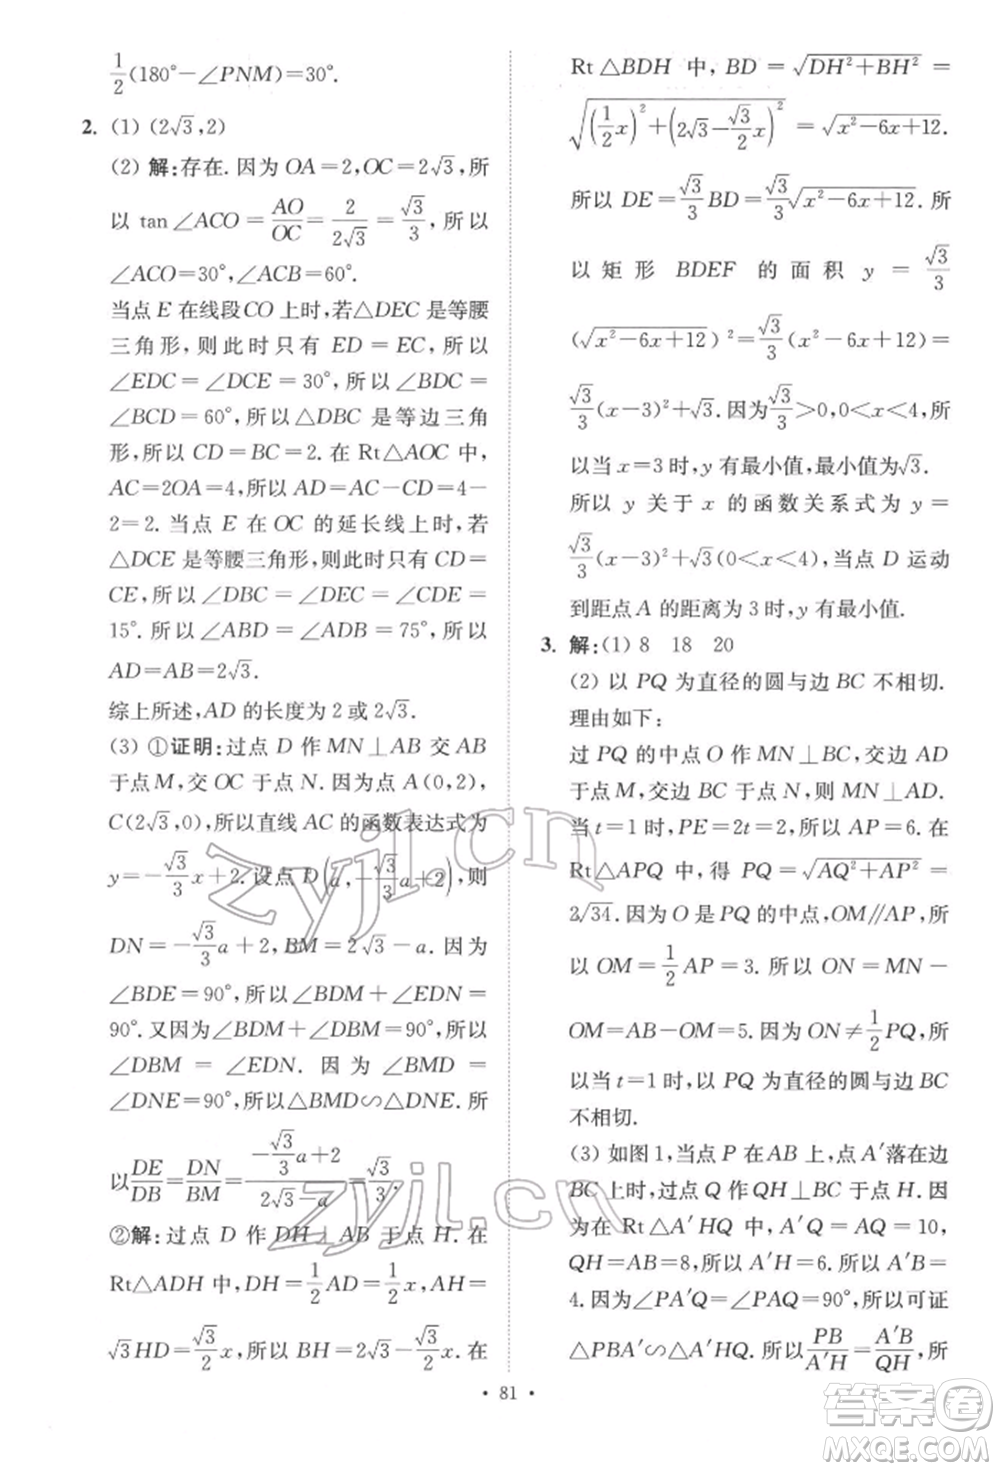 1/2(180°−∠PNM)=30°.
2. (1) (2√3,2)
(2) 解:存在. 因为 OA=2,OC=2√3,所
以 tan∠ACO=AO/OC=2/(2√3)=√3/3,所以
∠ACO=30°,∠ACB=60°.
当点 E 在线段CO 上时,若△DEC 是等腰
三角形,则此时只有 ED=EC,所以
∠EDC=∠DCE=30°,所以∠BDC=
∠BCD=60°,所以△DBC 是等边三角
形,所以 CD=BC=2. 在 Rt△AOC 中,
AC=2OA=4,所以 AD=AC−CD=4−
2=2. 当点 E 在 OC 的延长线上时,若
△DCE 是等腰三角形,则此时只有 CD=
CE,所以 ∠DBC=∠DEC=∠CDE=
15°. 所以∠ABD=∠ADB=75°,所以
AD=AB=2√3.
综上所述,AD 的长度为 2 或 2√3.
(3) ①证明:过点 D 作 MN⊥AB 交 AB
于点 M,交 OC 于点 N. 因为点 A(0,2),
C(2√3,0),所以直线 AC 的函数表达式为
y=−√3/3x+2. 设点 D(a,−√3/3a+2),则
DN=−√3/3a+2,BM=2√3−a. 因为
∠BDE=90°,所以∠BDM+∠EDN=
90°. 又因为∠BDM+∠DBM=90°,所以
∠DBM=∠EDN. 因为∠BMD=
∠DNE=90°,所以△BMD∽△DNE. 所
以DE/DB=DN/BM=(−√3/3a+2)/(2√3−a)=√3/3.
②解:过点 D 作 DH⊥AB 于点 H. 在
Rt△ADH 中,DH=1/2AD=1/2x,AH=
√3HD=√3/2x,所以 BH=2√3−√3/2x. 在
Rt△BDH 中,BD=√(DH²+BH²)=
√((1/2x)²+(2√3−√3/2x)²)=√(x²−6x+12).
所以 DE=√3/3BD=√3/3√(x²−6x+12). 所
以矩形 BDEF 的面积 y=√3/3
(√(x²−6x+12))²=√3/3(x²−6x+12)=
√3/3(x−3)²+√3. 因为√3/3>0,0<x<4,所
以当 x=3 时,y 有最小值,最小值为√3.
所以 y 关于 x 的函数关系式为 y=
√3/3(x−3)²+√3(0<x<4),当点 D 运动
到距点 A 的距离为 3 时,y 有最小值.
3. 解:(1) 8 18 20
(2) 以 PQ 为直径的圆与边 BC 不相切.
理由如下:
过 PQ 的中点 O 作 MN⊥BC,交边 AD
于点 M,交边 BC 于点 N,则 MN⊥AD.
当 t=1 时,PE=2t=2,所以 AP=6. 在
Rt△APQ 中,得 PQ=√(AQ²+AP²)=
2√34. 因为 O 是 PQ 的中点,OM∥AP,所
以 OM=1/2AP=3. 所以 ON=MN−
OM=AB−OM=5. 因为 ON≠1/2PQ,所
以当 t=1 时,以 PQ 为直径的圆与边 BC
不相切.
(3) 如图 1,当点 P 在 AB 上,点 A′落在边
BC 上时,过点 Q 作 QH⊥BC 于点 H. 因
为在 Rt△A′HQ 中,A′Q=AQ=10,
QH=AB=8,所以 A′H=6. 所以 A′B=
4. 因为∠PA′Q=∠PAQ=90°,所以可证
△PBA′∽△A′HQ,所以PB/A′H=A′B/QH,所
• 81 •
zyjl.cn
zyjl.cn
答案卷
MXQE.COM